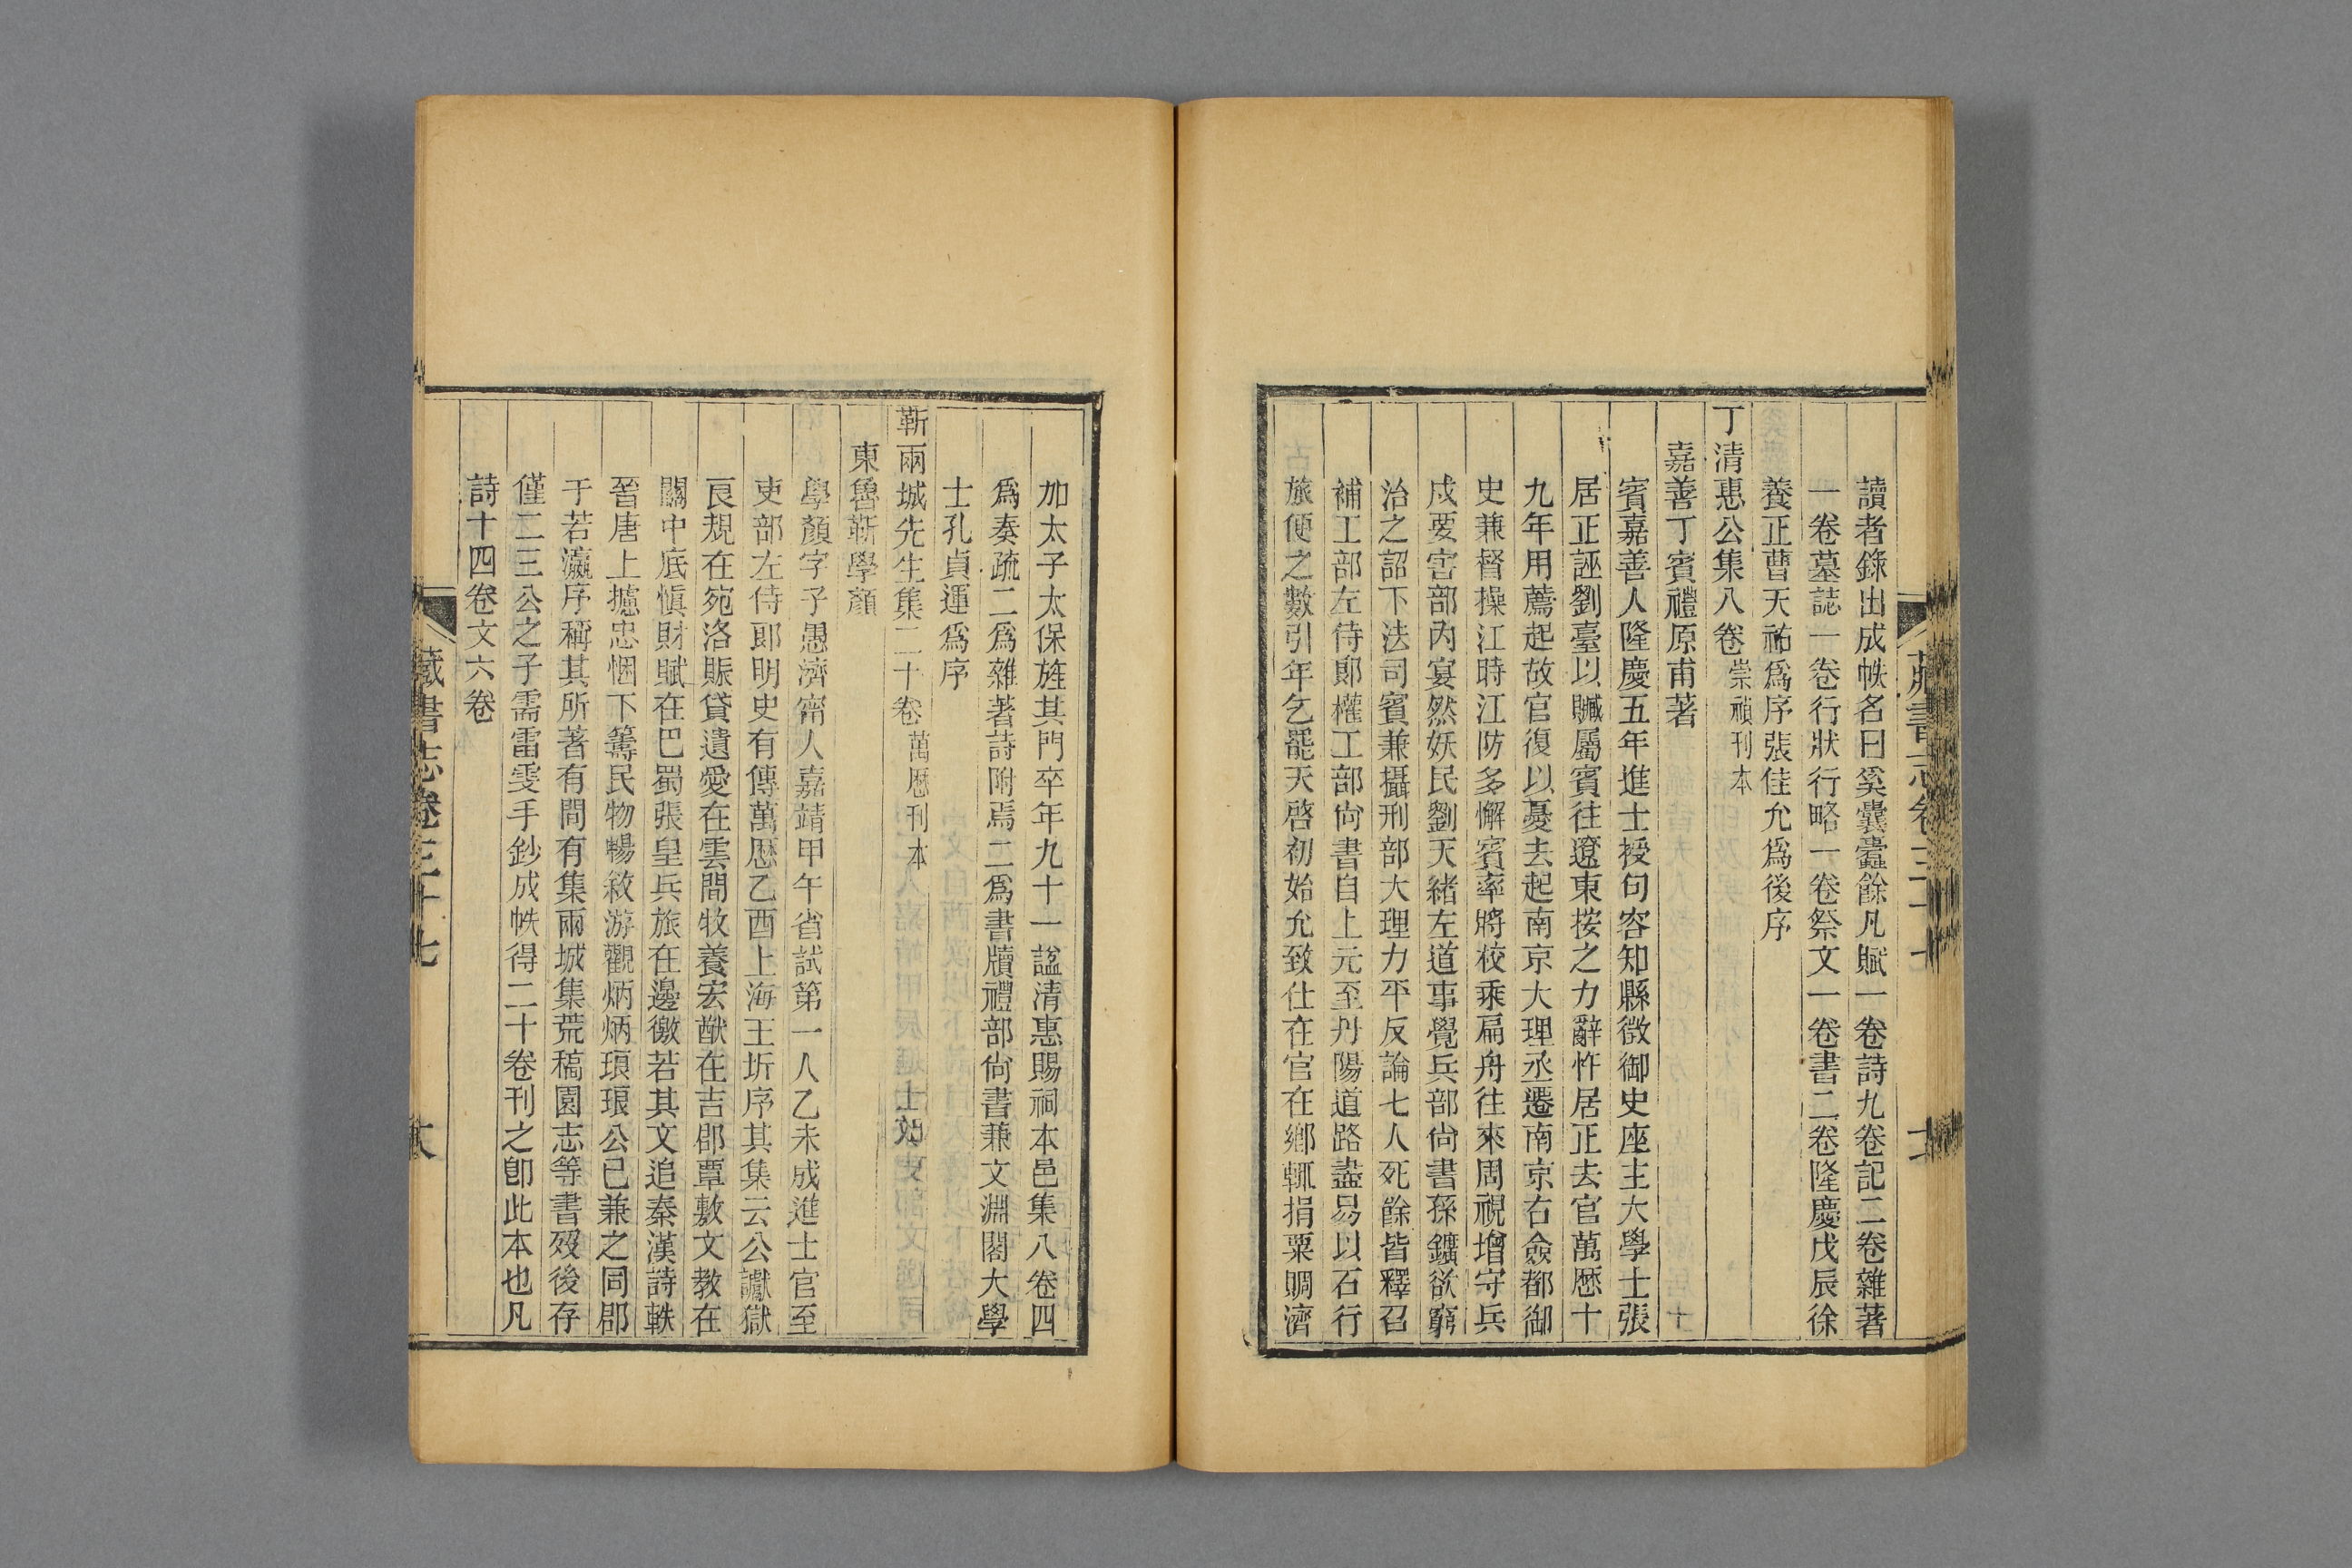 讀者錄出成帙名曰奚囊蠹餘凡賦一卷詩九卷記二卷雜著
一卷墓誌一卷行狀行略一卷祭文一卷書二卷隆慶戊辰徐
養正曹天祐爲序張佳允爲後序
丁清惠公集八卷崇禎刊本
嘉善丁賓禮原甫著
賓嘉善人隆慶五年進士授句容知縣徵御史座主大學士張
居正誣劉臺以贓屬賓往遼東按之力辭忤居正去官萬厯十
九年用薦起故官復以憂去起南京大理丞遷南京右僉都御
史兼督操江時江防多懈賓率將校乘扁舟往來周視增守兵
戍要害部內宴然妖民劉天緒左道事覺兵部尙書孫鑛欲窮
治之詔下法司賓兼攝刑部大理力平反論七人死餘皆釋召
補工部左侍郎權工部尙書自上元至丹陽道路盡易以石行
旅便之數引年乞罷天啓初始允致仕在官在鄉輒捐粟賙濟
加太子太保旌其門卒年九十一諡清惠賜祠本邑集八卷四
爲奏疏二爲雜著詩附焉二爲書牘禮部尙書兼文淵閣大學
士孔貞運爲序
靳兩城先生集二十卷萬厯刊本
東魯靳學顏
學顏字子愚濟甯人嘉靖甲午省試第一人乙未成進士官至
吏部左侍郎明史有傳萬厯乙酉上海王圻序其集云公讞獄
良規在宛洛賑貸遺愛在雲間牧養宏猷在吉郡覃敷文教在
關中底愼財賦在巴蜀張皇兵旅在邊徼若其文追秦漢詩軼
晉唐上攄忠悃下籌民物暢敘游觀炳炳琅琅公已兼之同郡
于若瀛序稱其所著有間有集兩城集荒稿園志等書歿後存
僅二三公之子需雷雯手鈔成帙得二十卷刊之卽此本也凡
詩十四卷文六卷
藏書志卷三十七